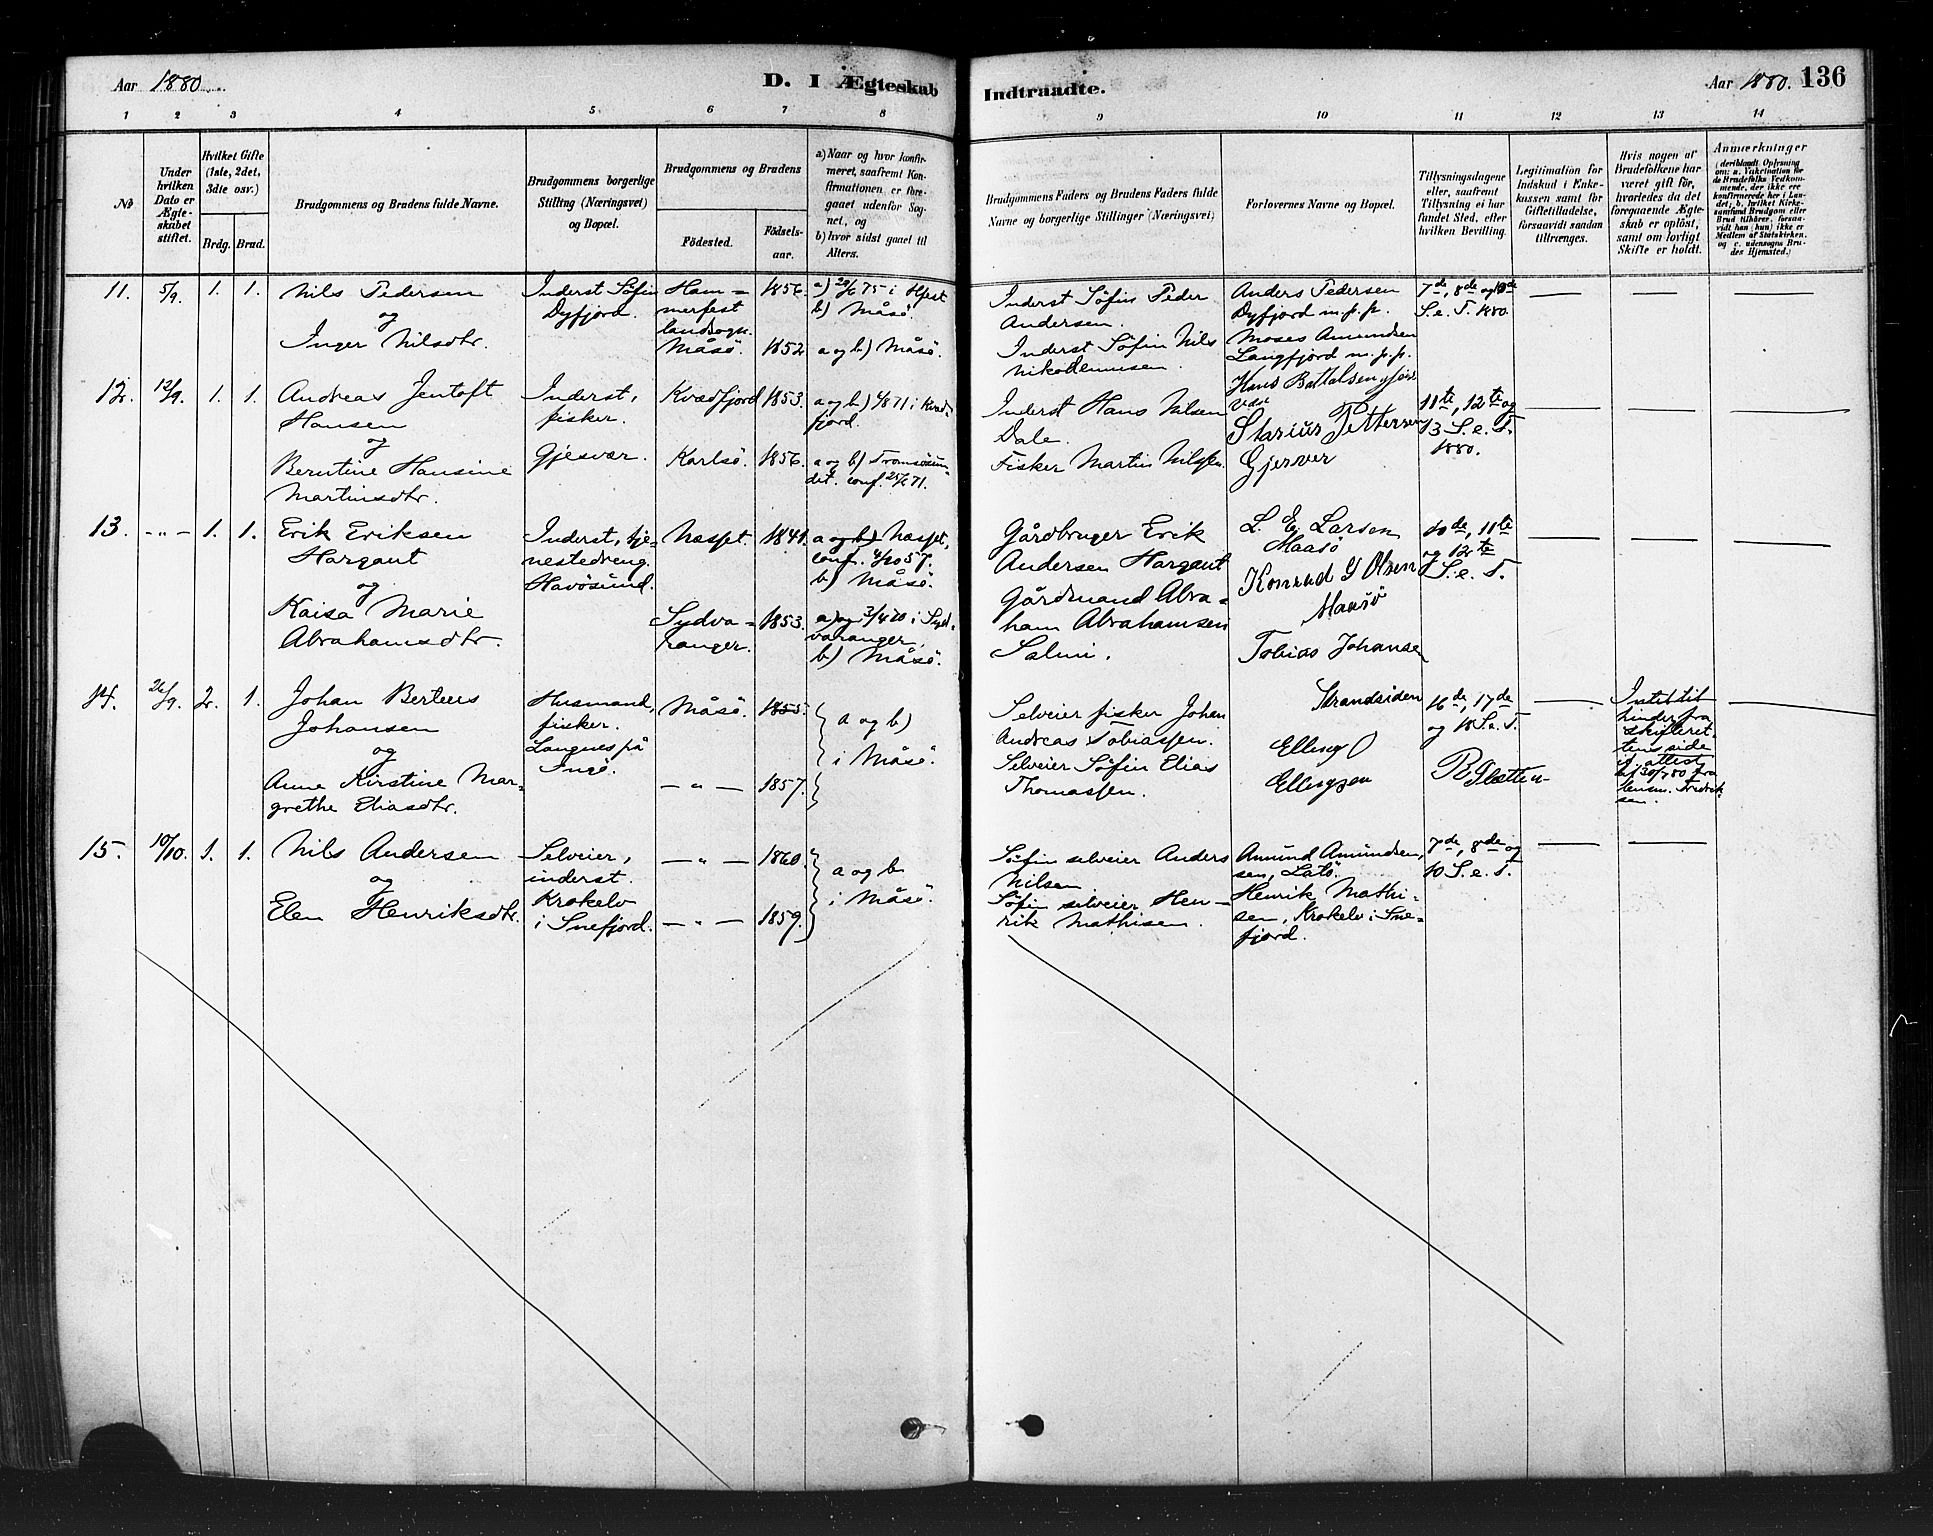 Aar 1880
D. I Ægteskab
Indtraadte.
Aar 1880. 136
1 2 3 4 5 6 7 8
9 10 11 12 13 14
No
Under hvilken Dato er Ægteskabet stiftet.
Hvilket Gifte (1ste, 2det, 3die osv.)
Brdg. Brud.
Brudgommens og Brudens fulde Navne.
Brudgommens borgerlige Stilling (Næringsvei) og Bopæl.
Brudgommens og Brudens
Födested.
Födselsaar.
a) Naar og hvor konfirmeret, saafremt Konfirmationen er foregaaet udenfor Sognet, og
b) hvor sidst gaaet til Alters.
Brudgommens Faders og Brudens Faders fulde Navne og borgerlige Stillinger (Næringsvei)
Forlovernes Navne og Bopæl.
Tillysningsdagene eller, saafremt Tillysning ei har fundet Sted, efter hvilken Bevilling.
Legitimation for Indskud i Enkekassen samt for Giftetilladelse, forsaavidt saadan tiltrænges.
Hvis nogen af Brudefolkene har været gift för, hvorledes da det foregaaende Ægteskab er oplöst, samt om lovligt Skifte er holdt.
Anmærkninger
(deriblandt Oplysning om: a. Vakcination for de Brudefolks Vedkommende, der ikke ere konfirmerede her i Landet, b. hvilket Kirkesamfund Brudgom eller Brud tilhører, forsaavidt han (hun) ikke er Medlem af Statskirken, og c. udensogns Brudes Hjemsted.)
11. 5/9. 1. 1.
Nils Pedersen
og
Inger Nilsdtr.
Inderst Söfin
Dyfjord.
Hammerfest
landsogn.
Måsö.
1856.
1852
a) 29/6 75 i Hfest
b) Måsö.
a og b) Måsö.
Inderst Söfin Peder
Andersen.
Inderst Söfin Nils
Nikodemusen.
Anders Pedersen
Dyfjord m.p.p.
Moses Amundsen
Langfjord m.p.p.
7de, 8de og 10de
S. e. T. 1880.
12. 12/9. 1. 1.
Andreas Jentoft
Hansen
og
Berntine Hansine
Martinsdtr.
Inderst,
fisker.
Gjesvær.
Kvædfjord
Karlsö.
1853.
1856.
a og b) 4/6 71 i Kvædfjord.
a og b) Tromsösundet. conf. 25/6 71.
Inderst Hans Nilsen
Dale.
Fisker Martin Nilsen.
Hans
Pettersen
11te, 12te og
13 S. e. T.
1880.
13. -"- 1. 1.
Erik Eriksen
Hargaut
og
Kaisa Marie
Abrahamsdtr.
Inderst, tjenestedreng.
Havösund.
Næsset.
Sydvaranger.
1841.
1853.
a og b) Næsset,
conf. 4/10 57.
b) Måsö.
a) og 3/4 70 i Sydvaranger.
b) Måsö.
Gårdbruger Erik
Andersen Hargaut
Gårdmand Abraham Abrahamsen
Salmi.
L. E. Larsen
Maasö
Konrad G Olsen
Maasö
10de, 11te
og 12te
S. e. T.
14. 26/9. 2. 1.
Johan Berteus
Johansen
og
Anne Kirstine Margrethe Eliasdtr.
Husmand,
fisker.
Langnes på
Ingö.
Måsö.
— " —
1855.
1857.
a og b)
i Måsö.
Selveier fisker Johan
Andreas Tobiassen.
Selveier Söfin Elias
Thomassen.
Tobias Johansen
Strandsiden
Elling O
Ellingsen
16de, 17de
og 18 S. e. T.
Intet til
hinder fra
skifteret
tens side
if. attest
af 30/7 80 fra
lensm. Fredriksen.
15. 10/10. 1. 1.
Nils Andersen
og
Elen Henriksdtr.
Selveier,
inderst.
Krokelv
i Snefjord.
— " —
— " —
1860.
1859.
a og b
i Måsö.
Söfin selveier Anders
Nilsen.
Söfin selveier Henrik Mathisen.
Amund Amundsen,
Henrik Mathisen, Krokelv i Snefjord.
7de, 8de og
10 S. e. T.